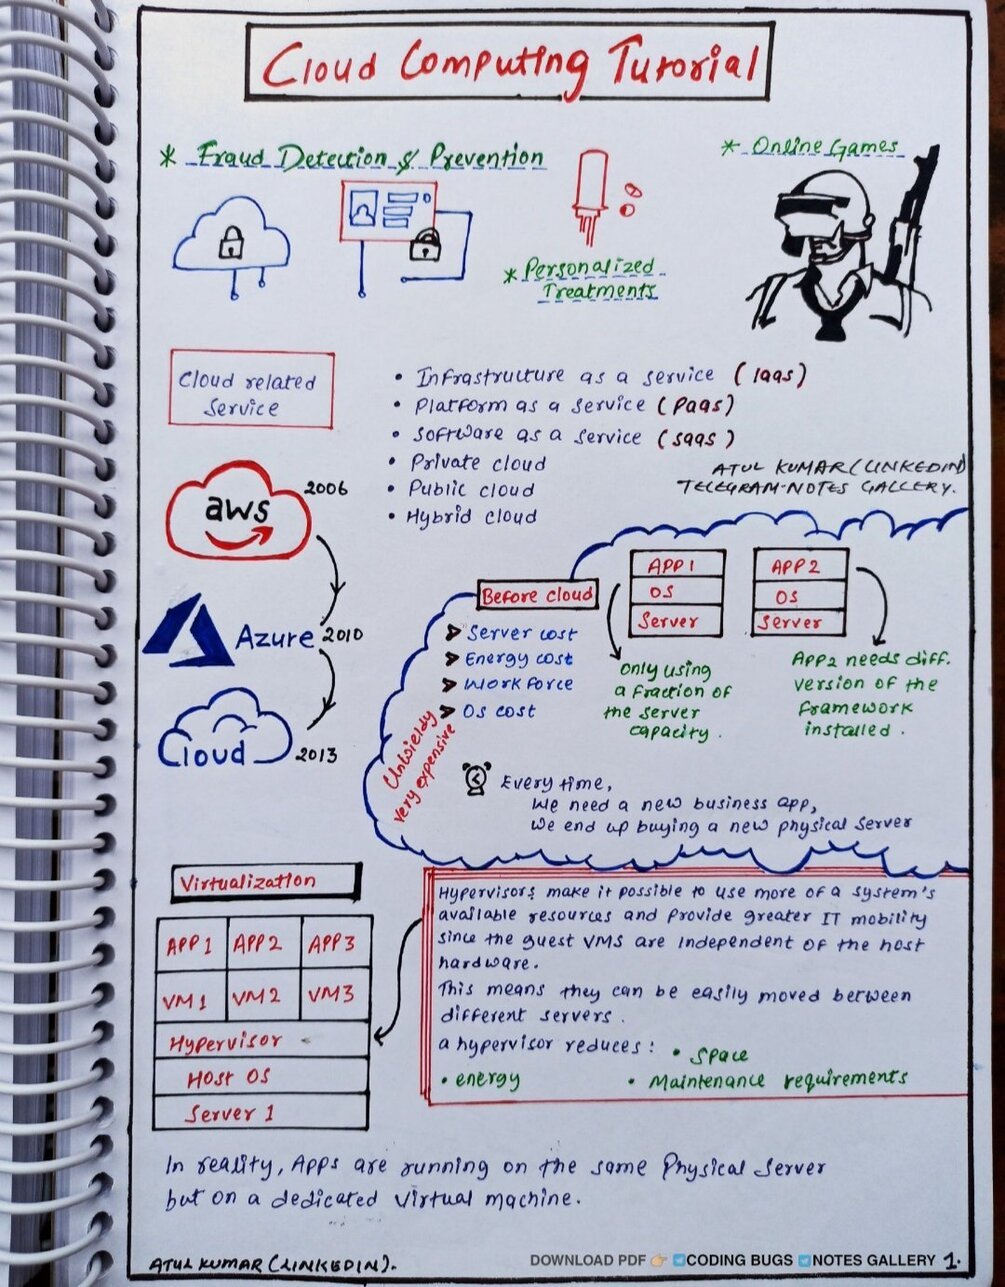 Cloud Computing Tutorial
* Fraud Detection & Prevention
* Online Games
* Personalized
Treatments
Cloud related
Service
• Infrastructure as a service (Iaas)
• Platform as a service (Paas)
• Software as a service (saas)
• Private cloud
• Public cloud
• Hybrid cloud
ATUL KUMAR (LINKEDIN)
TELEGRAM-NOTES GALLERY.
aws 2006
Azure 2010
Cloud 2013
Before cloud
➤ Server cost
➤ Energy cost
➤ Work force
➤ OS cost
Unwieldy
very expensive
APP 1
OS
Server
APP 2
OS
Server
only using
a fraction of
the server
capacity.
App2 needs diff.
version of the
framework
installed.
Every time,
We need a new business app,
We end up buying a new physical server
Virtualization
APP 1 APP 2 APP 3
VM 1 VM 2 VM 3
Hypervisor
Host OS
Server 1
Hypervisors make it possible to use more of a system's
available resources and provide greater IT mobility
since the guest VMS are independent of the host
hardware.
This means they can be easily moved between
different servers.
a hypervisor reduces: • Space
• energy • Maintenance requirements
In reality, Apps are running on the same Physical Server
but on a dedicated virtual machine.
ATUL KUMAR (LINKEDIN).
DOWNLOAD PDF 👉 CODING BUGS NOTES GALLERY 1.